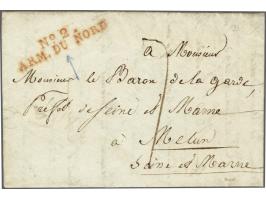 No 2.
ARM. DU NORD
a Monsieur
Monsieur le Baron de la Garde,
Préfet de Seine et Marne
à Melun
Seine et Marne